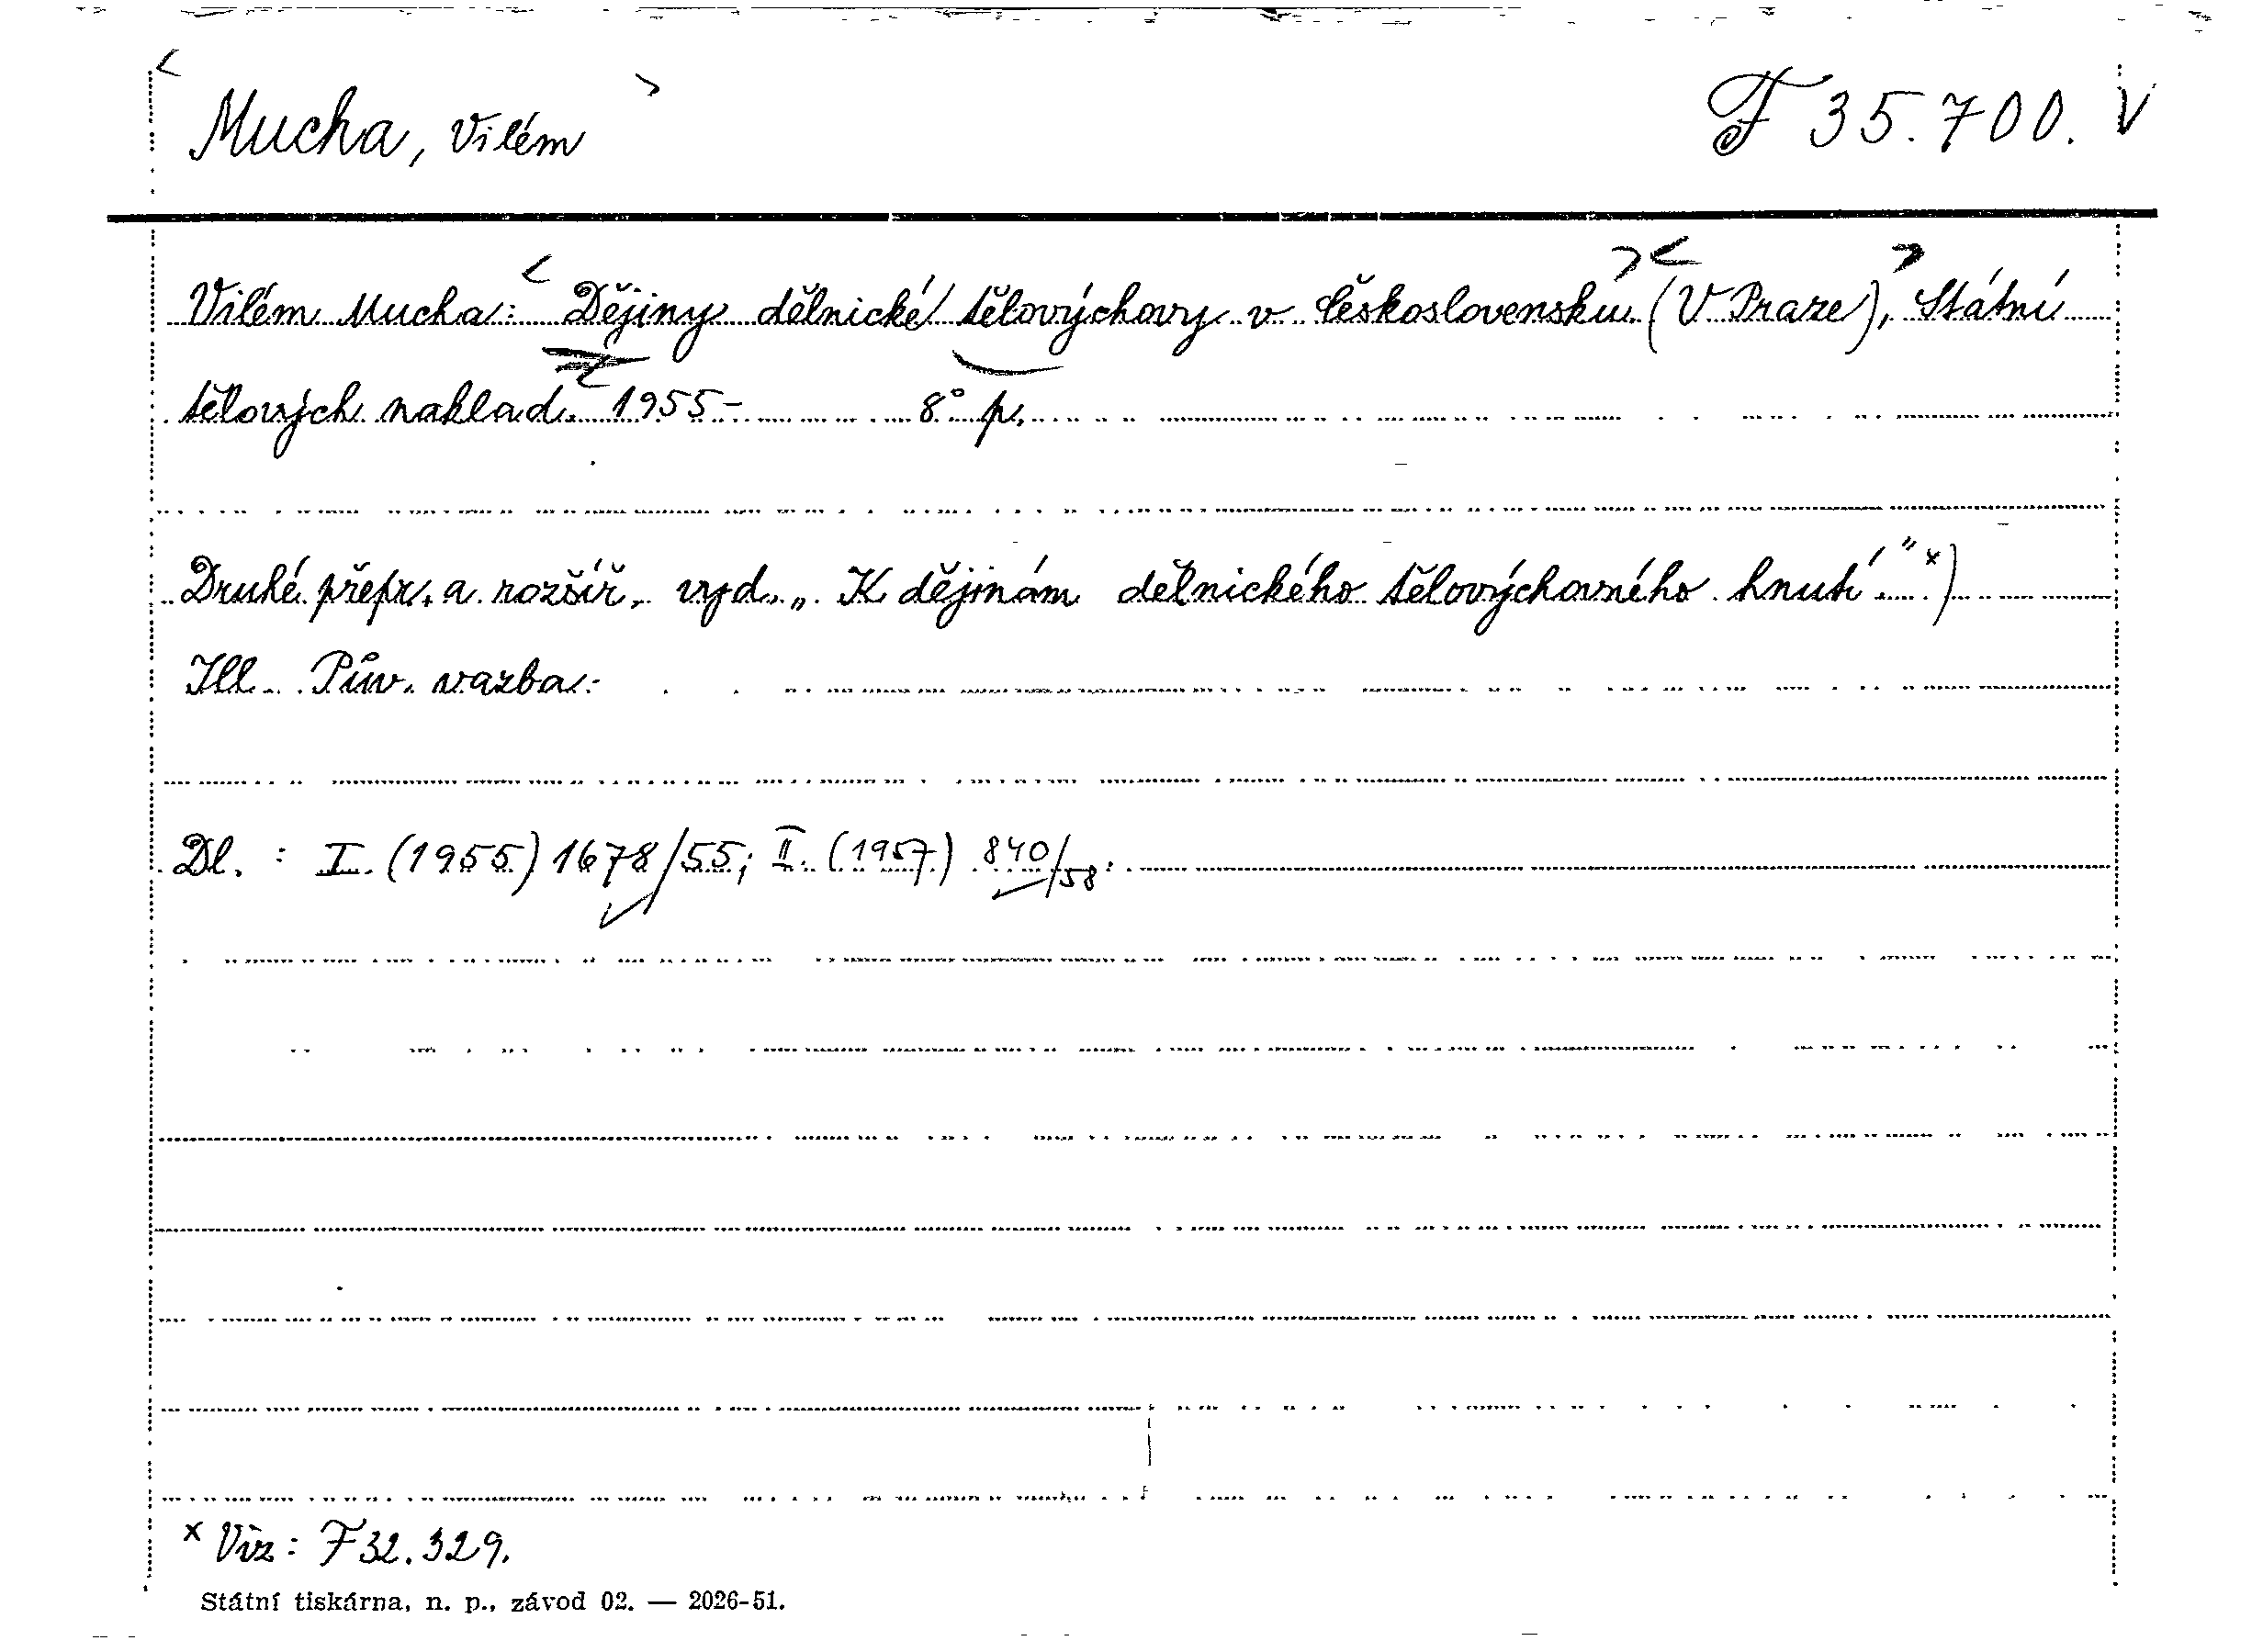 < Mucha, Vilém > F 35.700. V
Vilém Mucha: < Dějiny dělnické tělovýchovy v Československu. > < (V Praze), > Státní
tělových. naklad. 1955- 8° p.
Druhé přepr. a rozšíř. vyd. „K dějinám dělnického tělovýchovného hnutí." x)
Ill. Pův. vazba.
Dl. : I. (1955) 1678/55; II. (1957) 840/58.
x Viz: F 32.329.
Státní tiskárna, n. p., závod 02. — 2026-51.